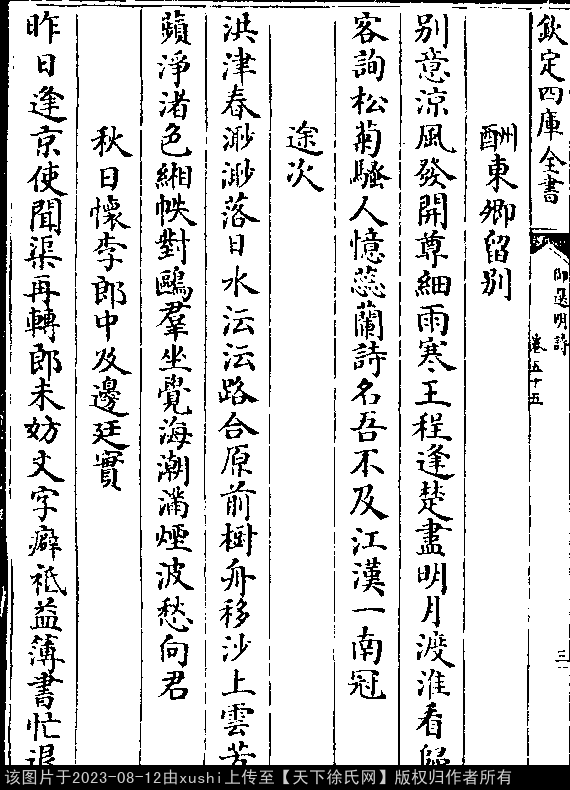 欽定四庫全書
御選明詩
卷五十五
三
酬東卿留别
别意涼風發開尊細雨寒王程逢楚盡明月渡淮看歸
客詢松菊騷人憶蕙蘭詩名吾不及江漢一南冠
途次
洪津春渺渺落日水沄沄路合原前樹舟移沙上雲芳
蘋淨渚色緗帙對鷗羣坐覺海潮滿煙波愁向君
秋日懷李郎中及邊廷實
昨日逢京使聞渠再轉郎未妨文字癖祗益簿書忙退
该图片于2023-08-12由xushi上传至【天下徐氏网】版权归作者所有